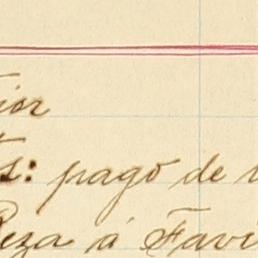 ior
s: pago de
eza á Favi